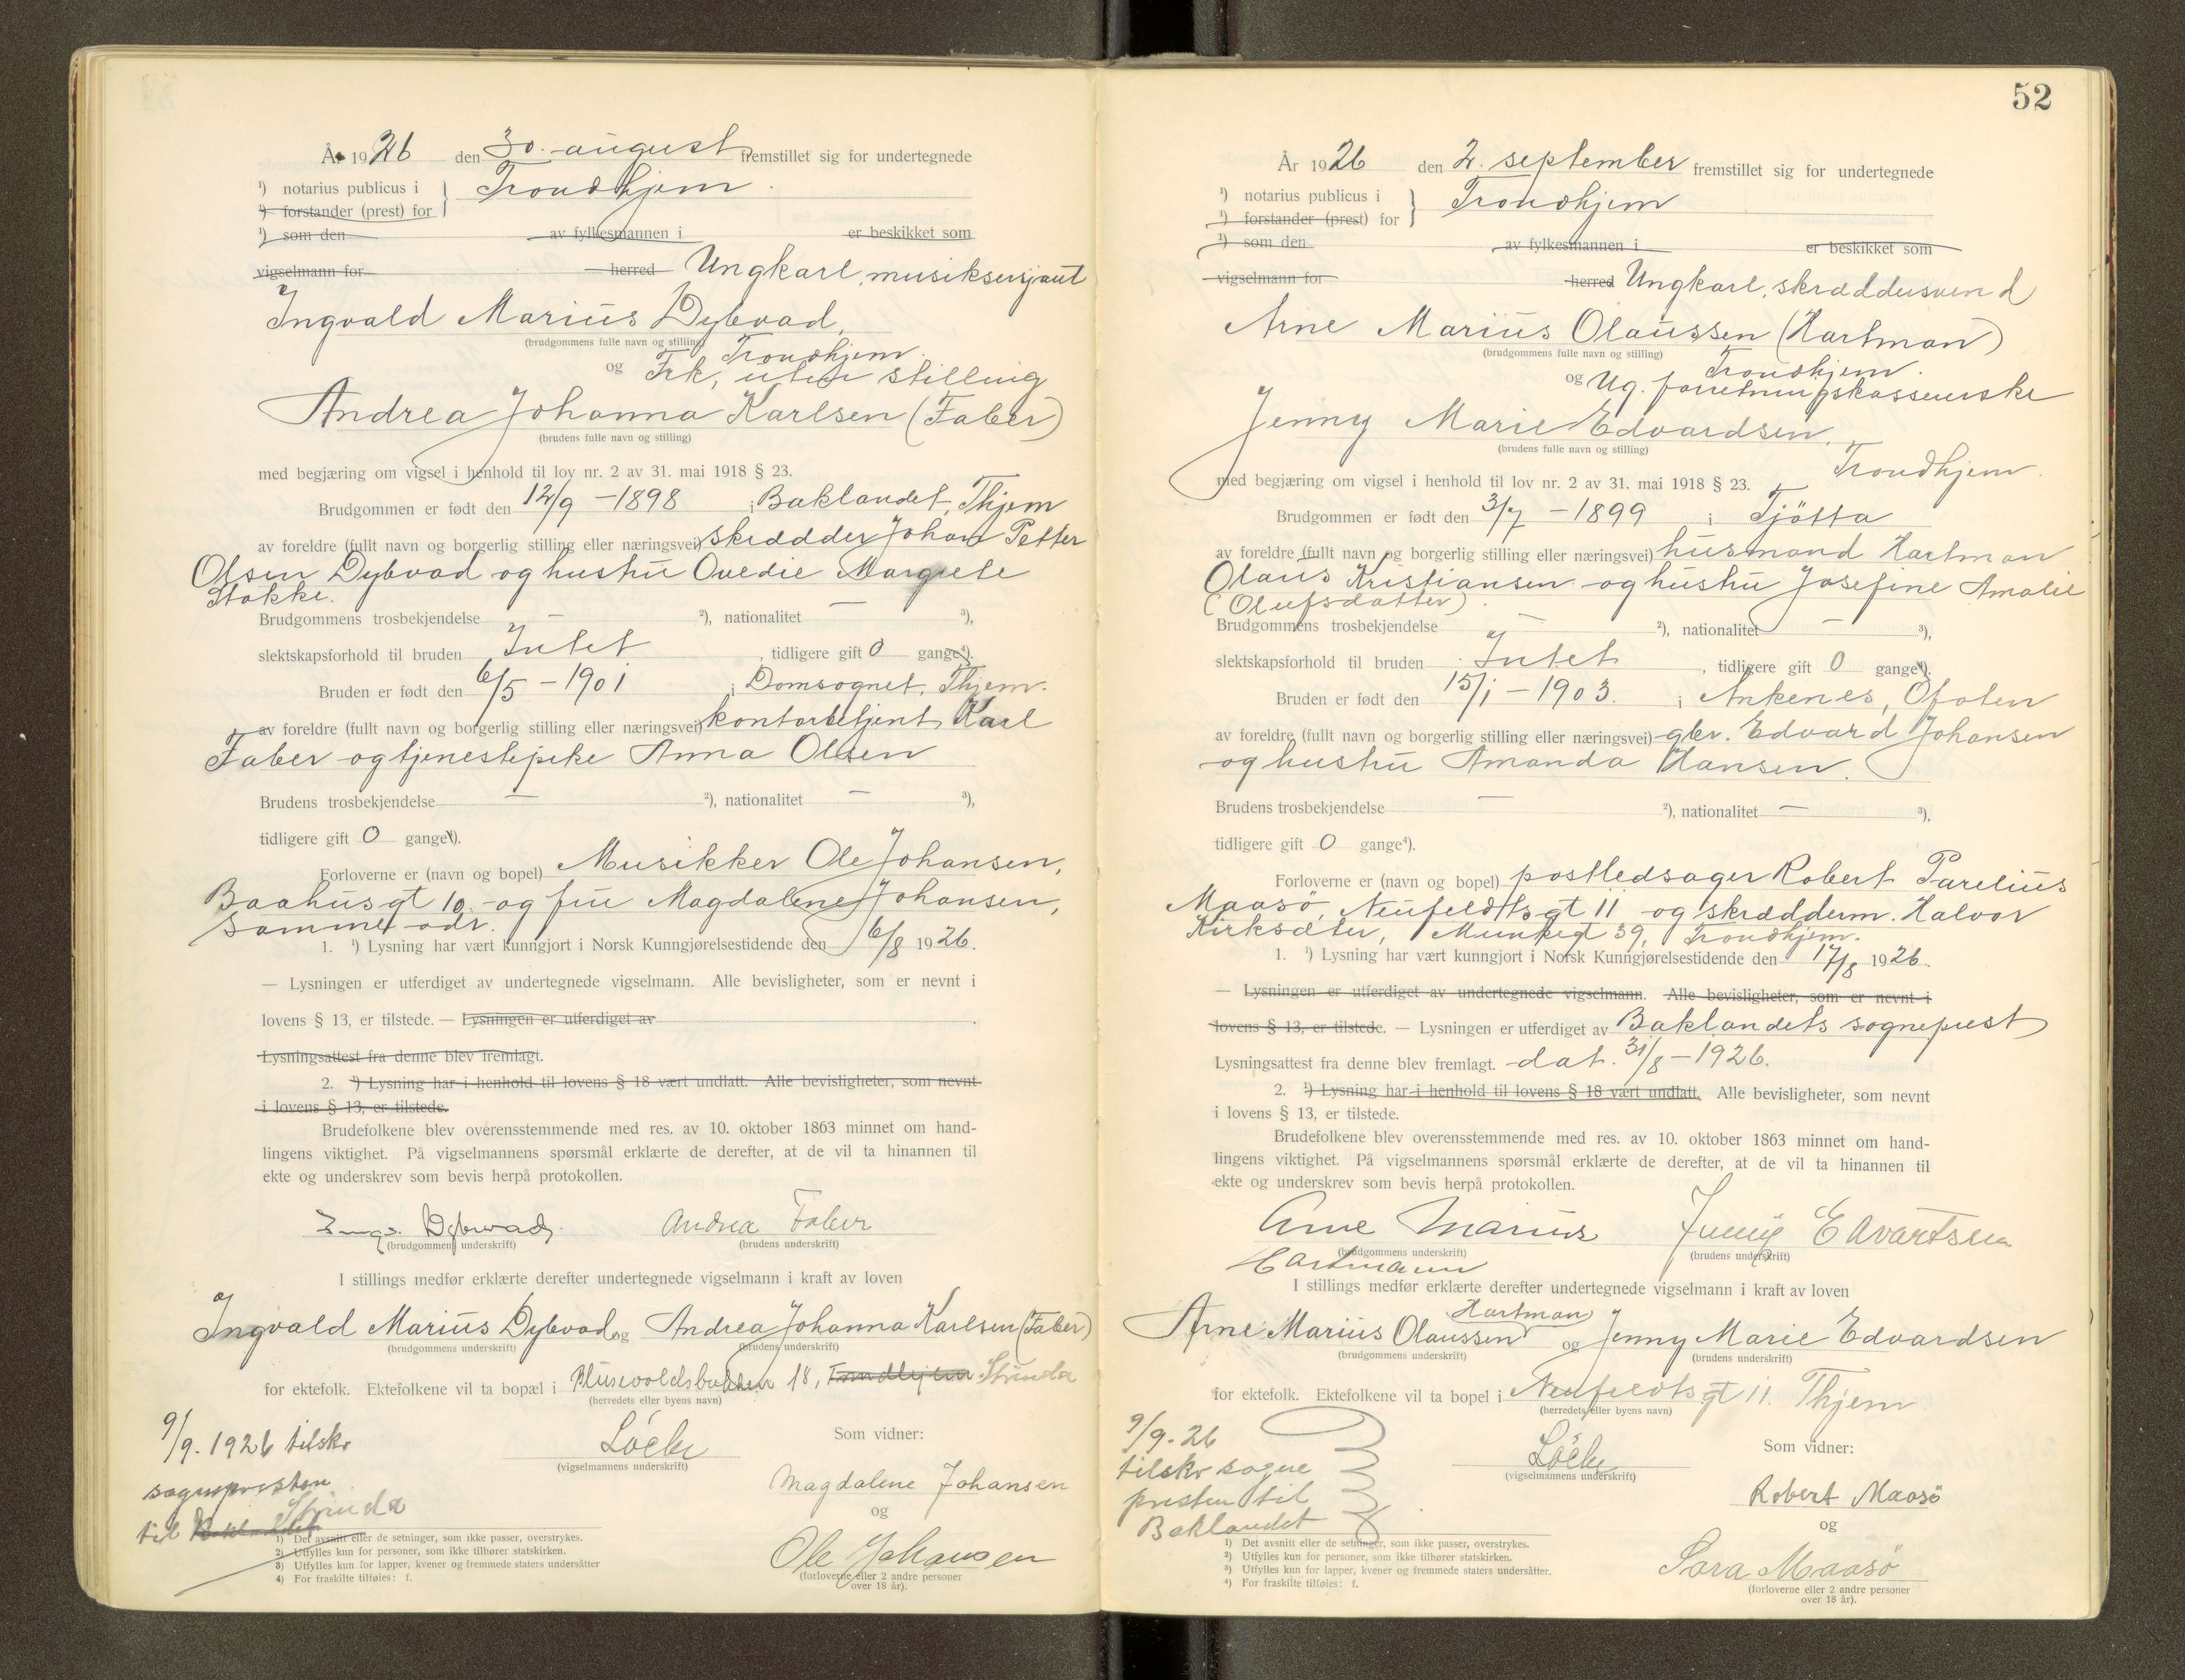 År 1926 den 30. august fremstillet sig for undertegnede
¹) notarius publicus i
¹) forstander (prest) for
Trondhjem.
¹) som den av fylkesmannen i er beskikket som
vigselmann for herred Ungkarl, musiksersjant
Ingvald Marius Dybvad,
(brudgommens fulle navn og stilling)
Trondhjem.
og Frk, uten stilling
Andrea Johanna Karlsen (Faber)
(brudens fulle navn og stilling)
med begjæring om vigsel i henhold til lov nr. 2 av 31. mai 1918 § 23.
Brudgommen er født den 12/9 - 1898 i Baklandet, Thjem
av foreldre (fullt navn og borgerlig stilling eller næringsvei) skrædder Johan Petter
Olsen Dybvad og hustru Ovedie Margrete
Stokke.
Brudgommens trosbekjendelse — ²), nationalitet — ³),
slektskapsforhold til bruden Intet, tidligere gift 0 gange⁴).
Bruden er født den 6/5 - 1901 i Domsognet, Thjem.
av foreldre (fullt navn og borgerlig stilling eller næringsvei) kontorbetjent Karl
Faber og tjenestepike Anna Olsen
Brudens trosbekjendelse — ²), nationalitet — ³),
tidligere gift 0 gange⁴).
Forloverne er (navn og bopel) Musikker Ole Johansen,
Baahusgt 10 - og fru Magdalene Johansen,
samme adr.
1. ¹) Lysning har vært kunngjort i Norsk Kunngjørelsestidende den 6/8 1926.
— Lysningen er utferdiget av undertegnede vigselmann. Alle bevisligheter, som er nevnt i
lovens § 13, er tilstede. — Lysningen er utferdiget av
Lysningsattest fra denne blev fremlagt.
2. ¹) Lysning har i henhold til lovens § 18 vært undlatt. Alle bevisligheter, som nevnt
i lovens § 13, er tilstede.
Brudefolkene blev overensstemmende med res. av 10. oktober 1863 minnet om hand-
lingens viktighet. På vigselmannens spørsmål erklærte de derefter, at de vil ta hinannen til
ekte og underskrev som bevis herpå protokollen.
Ingv. Dybwad. Andrea Faber
(brudgommens underskrift) (brudens underskrift)
I stillings medfør erklærte derefter undertegnede vigselmann i kraft av loven
Ingvald Marius Dybvad og Andrea Johanna Karlsen (Faber)
(brudgommens underskrift) (brudens underskrift)
for ektefolk. Ektefolkene vil ta bopæl i 18, Trondhjem Strinda
(herredets eller byens navn)
9/9. 1926 tilskr
sognepresten
Strinda
til Baklandet
Löcke
(vigselmannens underskrift)
Som vidner:
Magdalene Johansen
og
Ole Johansen
(forloverne eller 2 andre personer
over 18 år).
1) Det avsnitt eller de setninger, som ikke passer, overstrykes.
2) Utfylles kun for personer, som ikke tilhører statskirken.
3) Utfylles kun for lapper, kvener og fremmede staters undersåtter
4) For fraskilte tilføies: f.
52
År 1926 den 2. september fremstillet sig for undertegnede
¹) notarius publicus i
¹) forstander (prest) for
Trondhjem
¹) som den av fylkesmannen i er beskikket som
vigselmann for herred Ungkarl, skræddersvend
Arne Marius Olaussen (Hartman)
(brudgommens fulle navn og stilling)
Trondhjem.
og Ug. forretningskassererske
Jenny Marie Edvardsen,
(brudens fulle navn og stilling)
Trondhjem.
med begjæring om vigsel i henhold til lov nr. 2 av 31. mai 1918 § 23.
Brudgommen er født den 3/7 - 1899 i Tjötta
av foreldre (fullt navn og borgerlig stilling eller næringsvei) husmand Hartman
Olaus Kristiansen og hustru Josefine Amalie
(Olufsdatter).
Brudgommens trosbekjendelse — ²), nationalitet — ³),
slektskapsforhold til bruden Intet, tidligere gift 0 gange⁴).
Bruden er født den 15/1 - 1903. i Ankenes, Ofoten
av foreldre (fullt navn og borgerlig stilling eller næringsvei) gbr. Edvard Johansen
og hustru Amanda Hansen.
Brudens trosbekjendelse — ²), nationalitet — ³),
tidligere gift 0 gange⁴).
Forloverne er (navn og bopel) postledsager Robert Parelius
Maasö, Neufeldtsgt 11 og skrædderm. Halvor
Kirksæter, Munkegt 39, Trondhjem.
1. ¹) Lysning har vært kunngjort i Norsk Kunngjørelsestidende den 17/8 1926.
— Lysningen er utferdiget av undertegnede vigselmann. Alle bevisligheter, som er nevnt i
lovens § 13, er tilstede. — Lysningen er utferdiget av Baklandets sogneprest
Lysningsattest fra denne blev fremlagt. dat. 31/8 - 1926.
2. ¹) Lysning har i henhold til lovens § 18 vært undlatt. Alle bevisligheter, som nevnt
i lovens § 13, er tilstede.
Brudefolkene blev overensstemmende med res. av 10. oktober 1863 minnet om hand-
lingens viktighet. På vigselmannens spørsmål erklærte de derefter, at de vil ta hinannen til
ekte og underskrev som bevis herpå protokollen.
Arne Marius Jenny Edvartsen
(brudgommens underskrift) (brudens underskrift)
Hartmann
I stillings medfør erklærte derefter undertegnede vigselmann i kraft av loven
Hartman
Arne Marius Olaussen og Jenny Marie Edvardsen
(brudgommens underskrift) (brudens underskrift)
for ektefolk. Ektefolkene vil ta bopel i Neufeldtsgt 11. Thjem
(herredets eller byens navn)
9/9. 26
tilskr sogne
presten til
Baklandet
Löcke
(vigselmannens underskrift)
Som vidner:
Robert Maasö
og
Sara Maasö
(forloverne eller 2 andre personer
over 18 år).
1) Det avsnitt eller de setninger, som ikke passer, overstrykes.
2) Utfylles kun for personer, som ikke tilhører statskirken.
3) Utfylles kun for lapper, kvener og fremmede staters undersåtter.
4) For fraskilte tilføies: f.